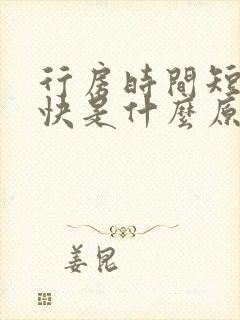 行房時間短
快是什麼原
姜昆